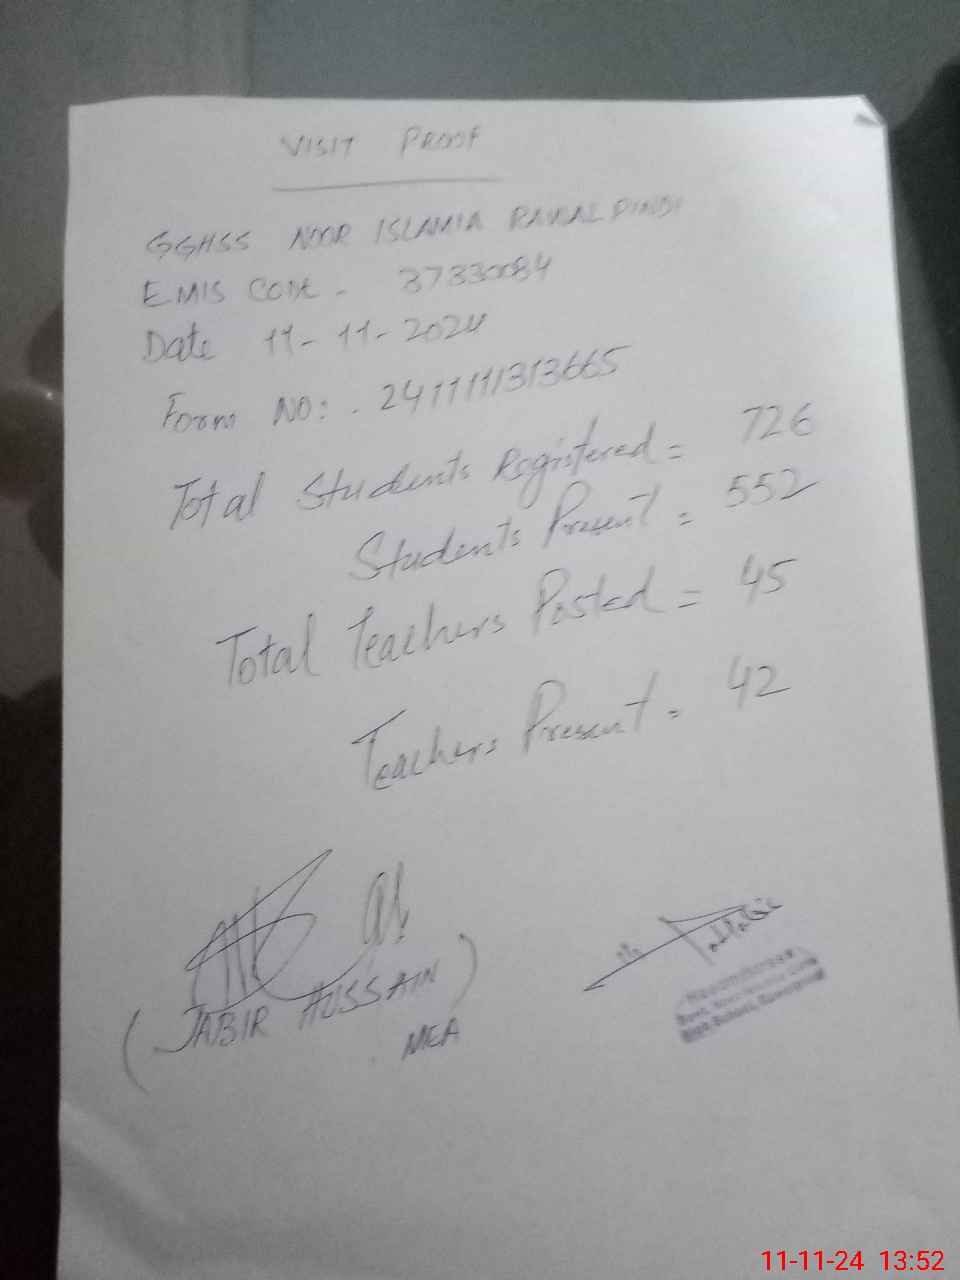 VISIT PROOF
GGHSS NOOR ISLAMIA RAWALPINDI
EMIS CODE - 37330084
Date 11-11-2024
Form NO: - 2411111313665
Total Students Registered = 726
Students Present = 552
Total Teachers Posted = 45
Teachers Present = 42
(JABIR HUSSAIN)
MEA
Headmistress
High School, Rawalpindi
11-11-24 13:52